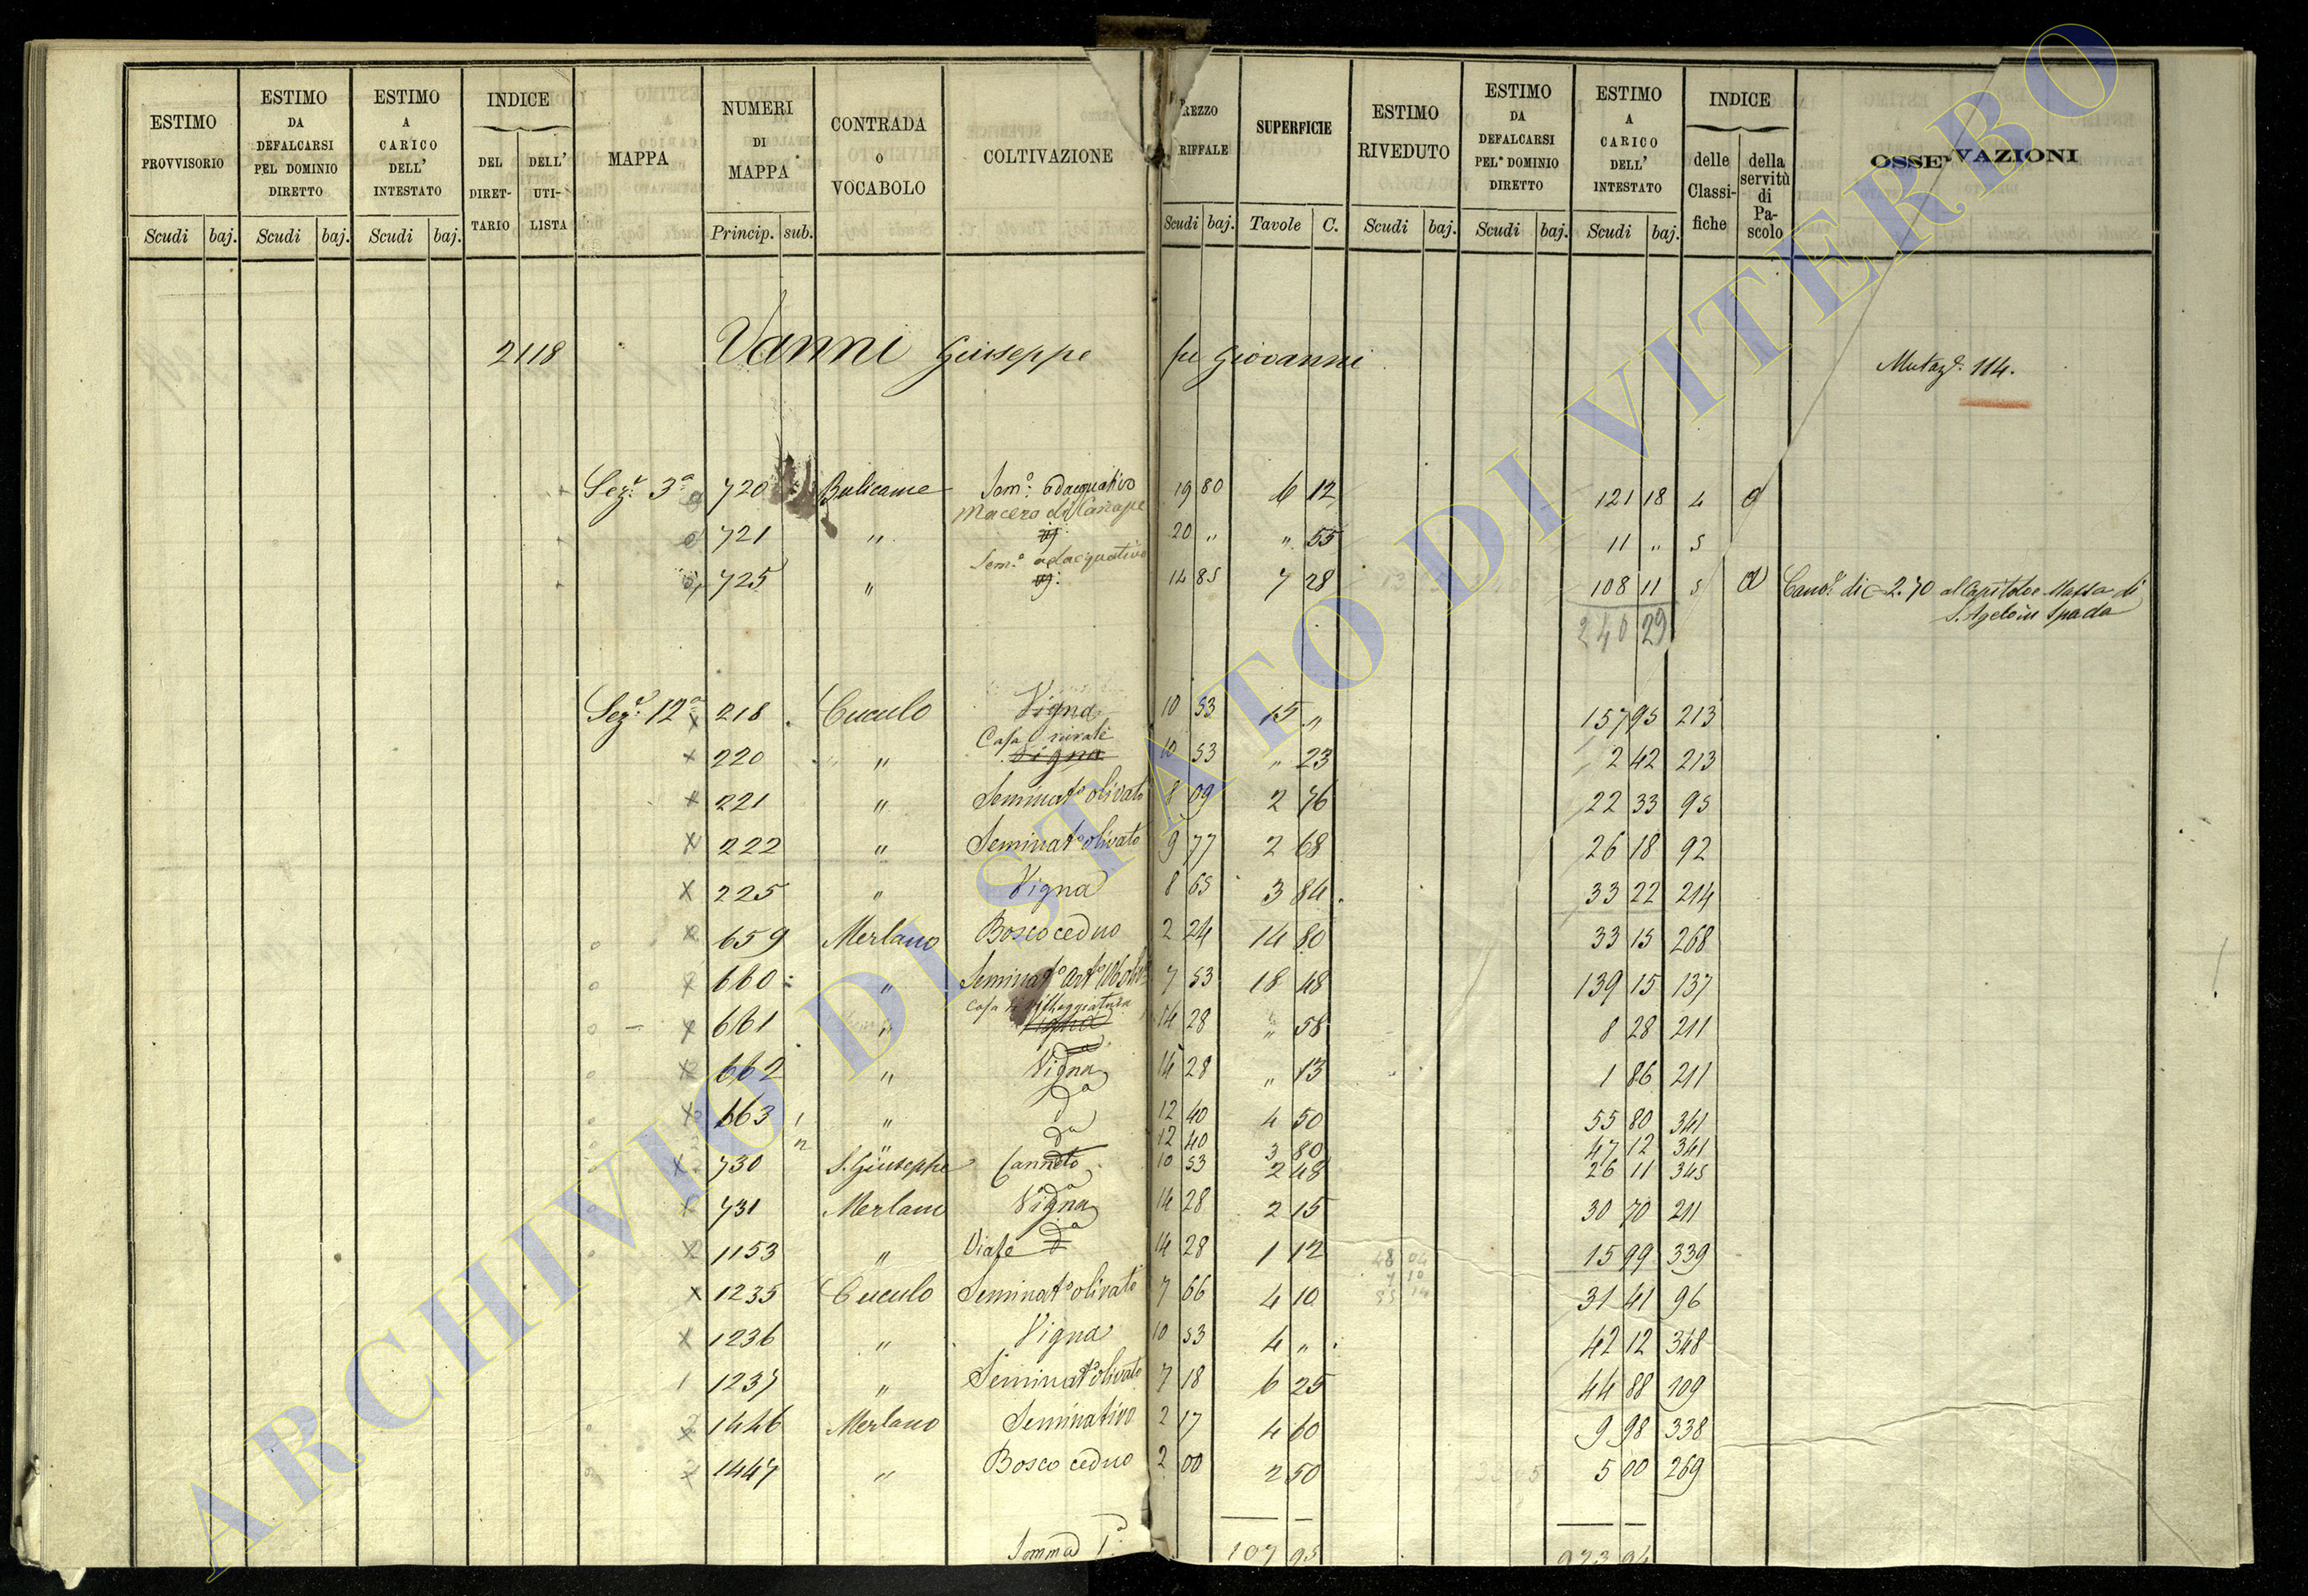 ESTIMO PROVVISORIO ESTIMO DA DEFALCARSI PEL DOMINIO DIRETTO ESTIMO A CARICO DELL' INTESTATO INDICE DEL DIRET-TARIO DELL' UTI-LISTA MAPPA NUMERI DI MAPPA CONTRADA O VOCABOLO COLTIVAZIONE REZZO RIFFALE SUPERFICIE ESTIMO RIVEDUTO ESTIMO DA DEFALCARSI PEL DOMINIO DIRETTO ESTIMO A CARICO DELL' INTESTATO INDICE delle Classi-fiche della servitù di Pa-scolo OSSE VAZIONI
Scudi baj. Scudi baj. Scudi baj. Princip. sub. Scudi baj. Tavole C. Scudi baj. Scudi baj. Scudi baj.
2118 Vanni Giuseppe fu Giovanni Mutaz.e 114.
Sez.e 3a 720 Bulicame Sem.o adacquativo 19 80 6 12 121 18 4 a
Macero di Canape
721 " 20 " " 55 11 " 5
Sem.o adacquativo
725 " 14 85 7 28 108 11 5 a Can.e di 2.70 al Capitolo e Massa di
240 29 S. Agelo in Spada
Sez.e 12a x 218 Cuculo Vigna 10 53 15 " 157 95 213
Casa rurale
x 220 " Vigna 10 53 " 23 2 42 213
x 221 " Seminat.o olivato 8 09 2 76 22 33 95
x 222 " Seminat.o olivato 9 77 2 68 26 18 92
x 225 " Vigna 8 65 3 84 33 22 214
x 659 Merlano Bosco ceduo 2 24 14 80 33 15 268
x 660 " Seminat.o 7 53 18 48 139 15 137
Casa di villeggiatura
x 661 " Vigna 14 28 " 58 8 28 211
x 662 " Vigna 14 28 " 13 1 86 211
x 663 1 " da 12 40 4 50 55 80 341
2 da 12 40 3 80 47 12 341
x 730 S. Giuseppe Canneto 10 53 2 48 26 11 345
x 731 Merlano Vigna 14 28 2 15 30 70 211
x 1153 " Viale 14 28 1 12 15 99 339
x 1235 Cuculo Seminat.o olivato 7 66 4 10 31 41 96
x 1236 " Vigna 10 53 4 " 42 12 348
1237 " Seminat.o olivato 7 18 6 25 44 88 109
x 1446 Merlano Seminativo 2 17 4 60 9 98 338
x 1447 " Bosco ceduo 2 00 2 50 5 00 269
Somma 107 95 973 94
ARCHIVIO DI STATO DI VITERBO